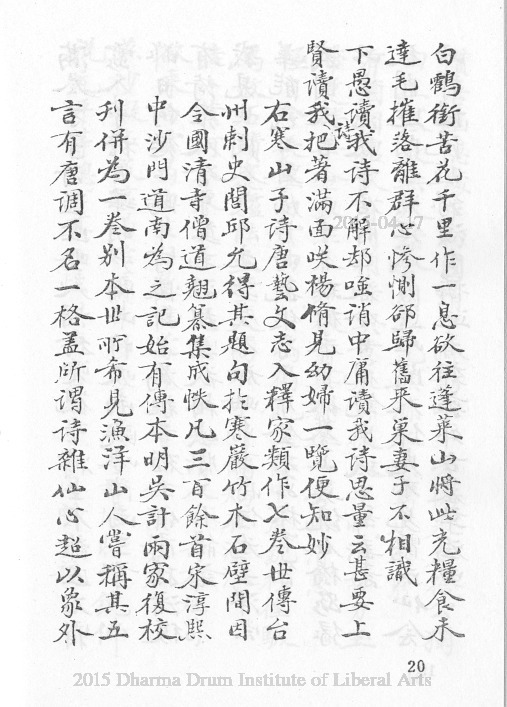 白鶴銜苦花千里作一息欲往蓬萊山將此充糧食未
達毛摧落離群心慘惻郤歸舊來巢妻子不相識
下愚讀我诗不解却嗤誚中庸讀我诗思量云甚要上
賢讀我诗把著滿面咲楊脩見幼婦一覽便知妙
右寒山子诗唐藝文志入釋家類作七卷世傳台
州刺史閭邱允得其題句於寒巖竹木石壁間因
令國清寺僧道翹纂集成帙凡三百餘首宋淳熙
中沙門道南為之記始有傳本明吳計兩家復校
刊併為一卷别本世所希見漁洋山人嘗稱其五
言有唐調不名一格盖所谓诗雜仙心超以象外
20
2015 Dharma Drum Institute of Liberal Arts